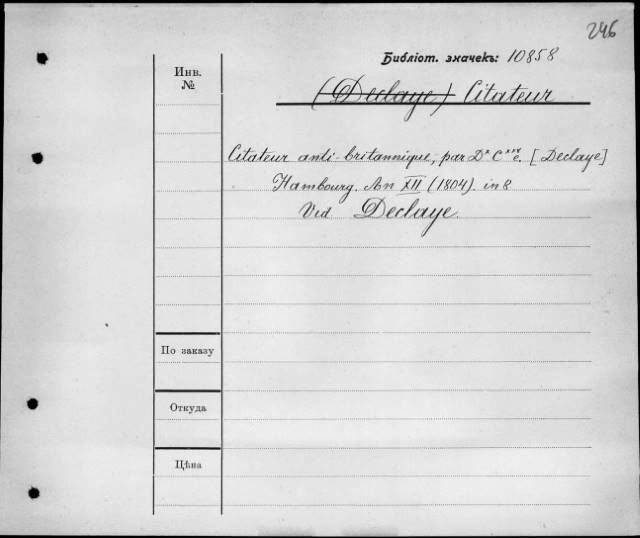 246
Библіот. значекъ: 10858
Инв.
№
(Declaye) Citateur
Citateur anti-britannique, par D.x C.xxx e. [Declaye]
Hambourg. An XII (1804). in 8
Vid. Declaye.
По заказу
Откуда
Цѣна